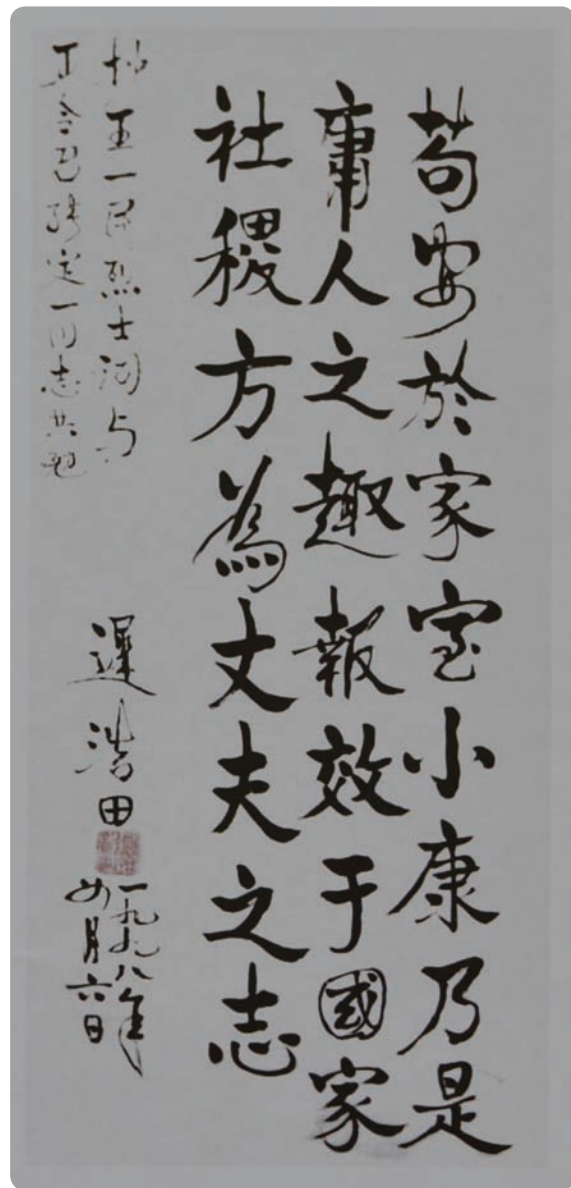 苟安於家室小康乃是
庸人之趣報效于國家
社稷方為丈夫之志
抄王一民烈士詞与
定一同志共勉
遲浩田
一九九八年
四月六日